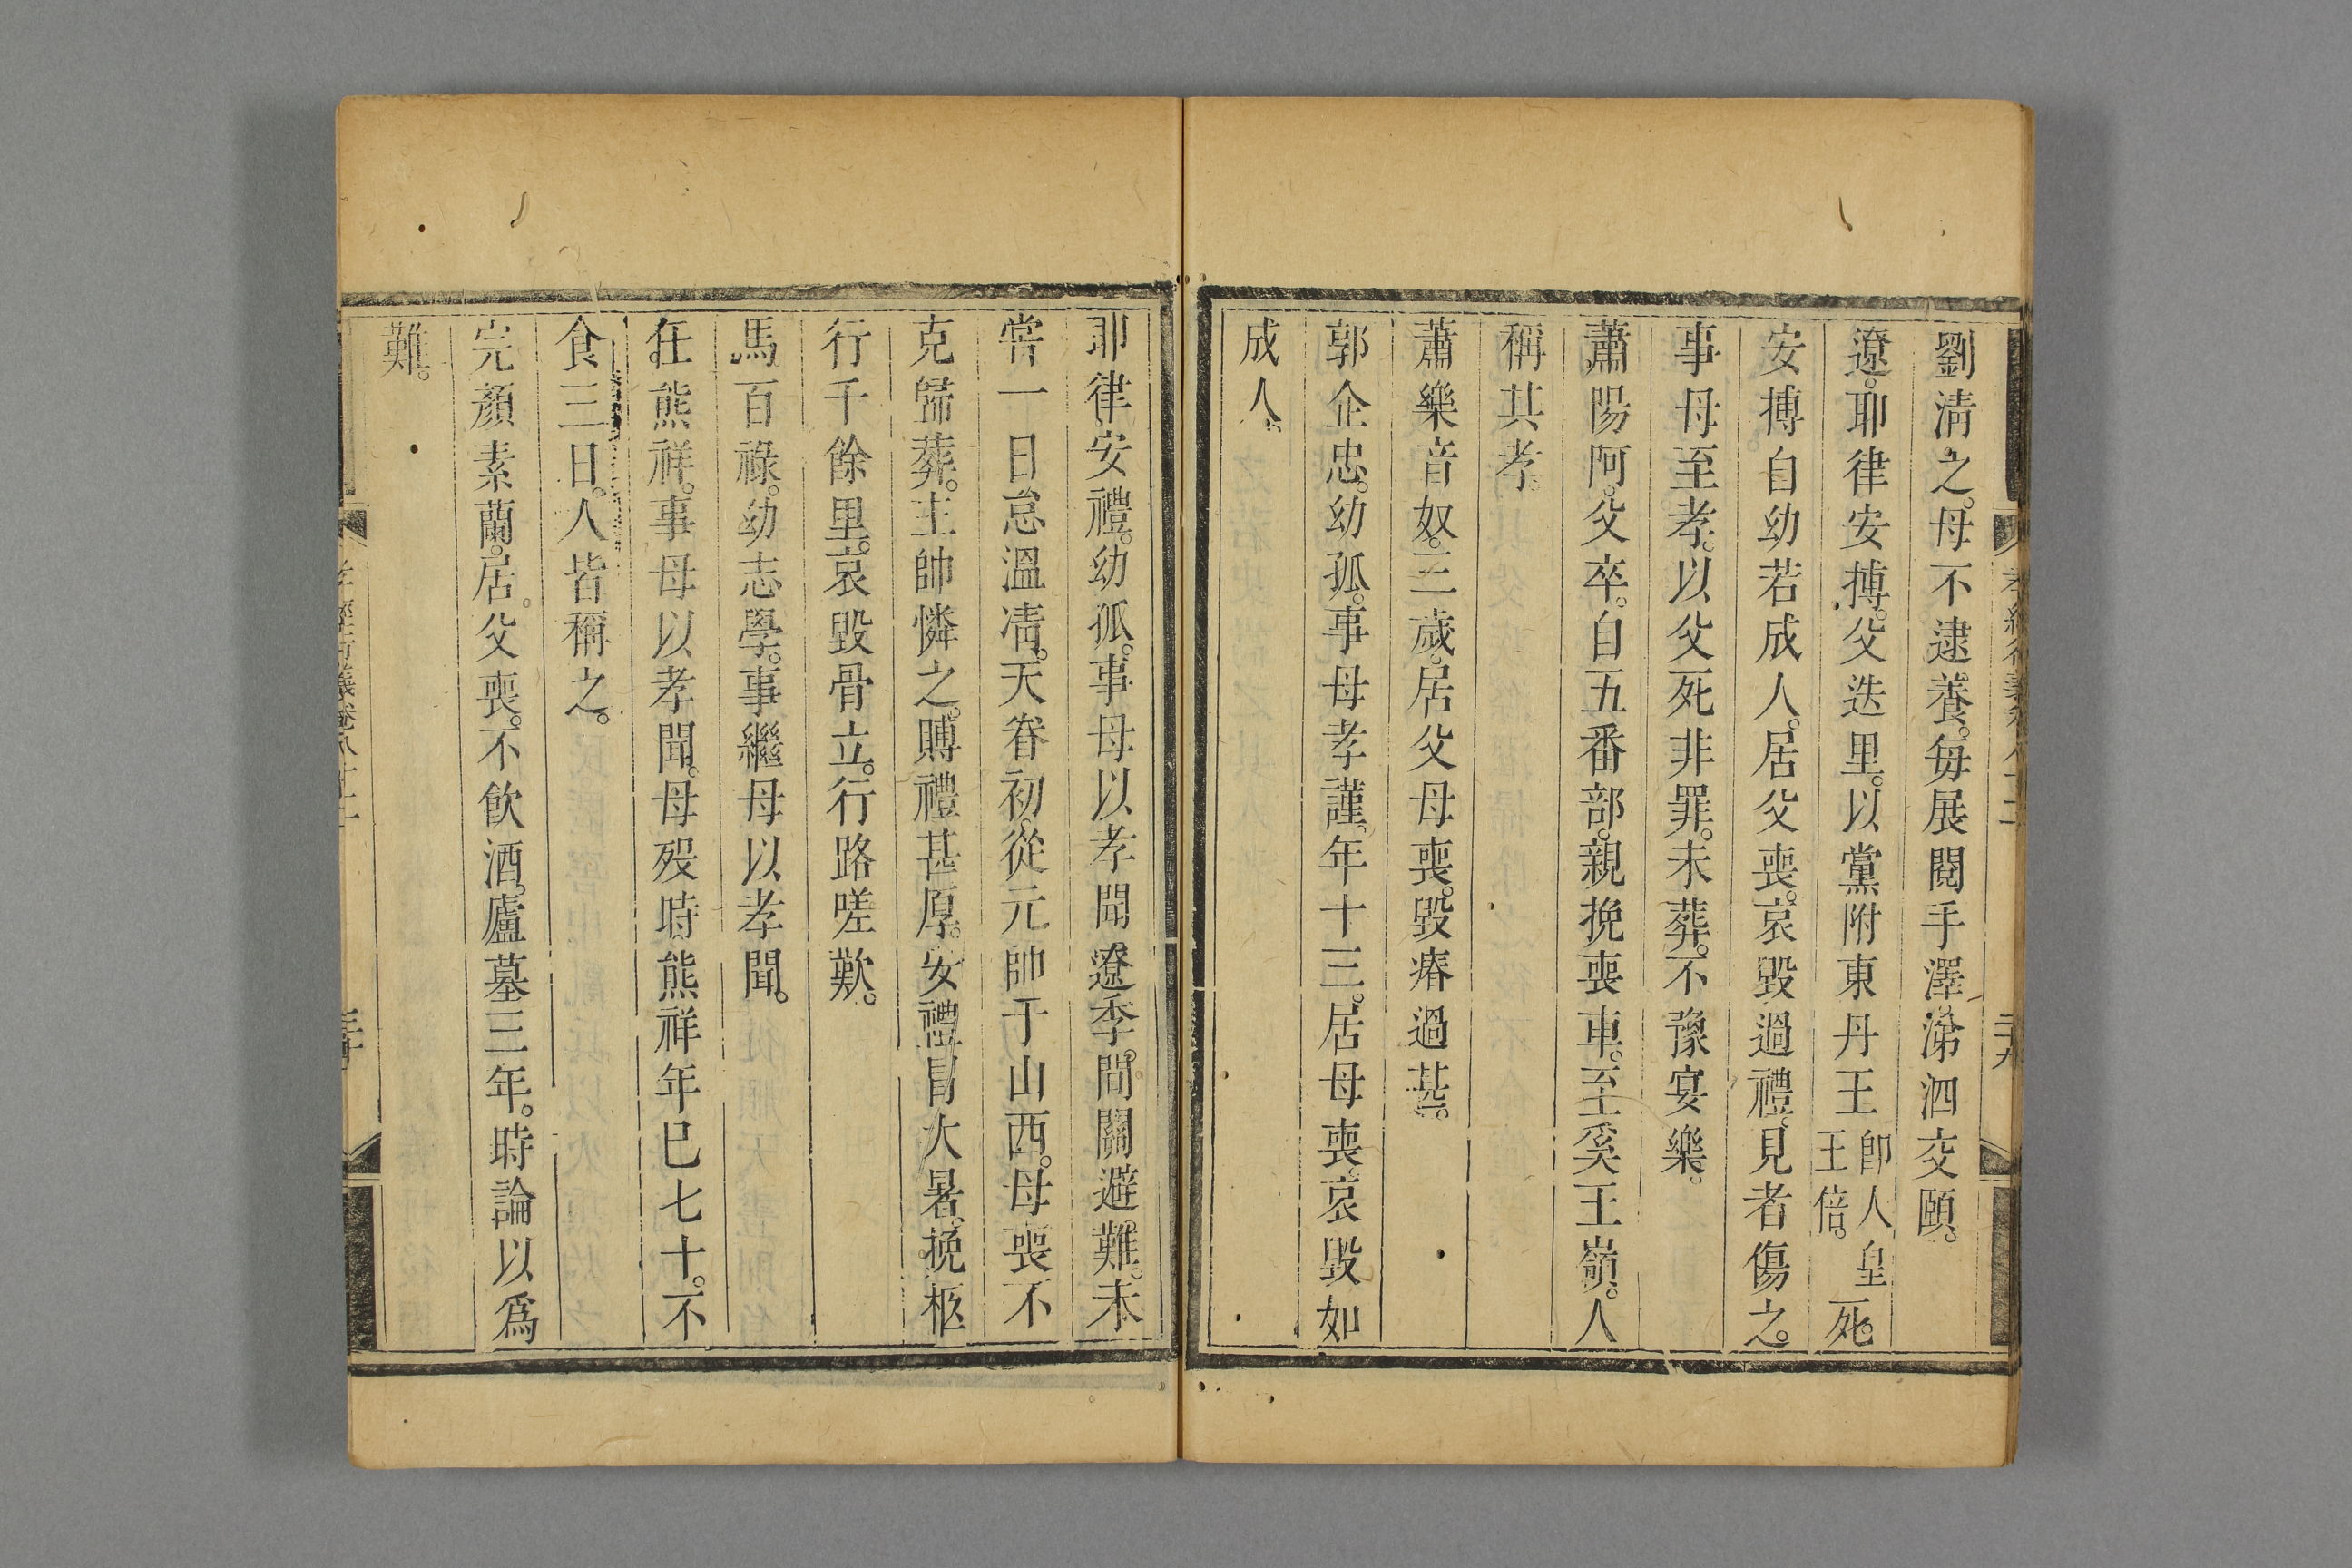 劉淸之。母不逮養。每展閱手澤。涕泗交頤。
遼。耶律安摶。父迭里。以黨附東丹王卽人皇王倍。死。
安摶自幼若成人。居父喪。哀毀過禮。見者傷之。
事母至孝。以父死非罪。未葬。不豫宴樂。
蕭陽阿。父卒。自五番部。親挽喪車。至奚王嶺。人
稱其孝。
蕭樂音奴。三歲。居父母喪。毀瘠過甚。
郭企忠。幼孤。事母孝謹。年十三。居母喪。哀毀如
成人。
耶律安禮。幼孤。事母以孝聞。遼季。間關避難。未
嘗一日怠溫凊。天眷初。從元帥于山西。母喪。不
克歸葬。主帥憐之。賻禮甚厚。安禮冒大暑。挽柩
行千餘里。哀毀骨立。行路嗟歎。
馬百祿。幼志學。事繼母以孝聞。
任熊祥。事母以孝聞。母歿時。熊祥年已七十。不
食三日。人皆稱之。
完顏素蘭。居父喪。不飮酒。廬墓三年。時論以爲
難。
孝經衍義卷八十二